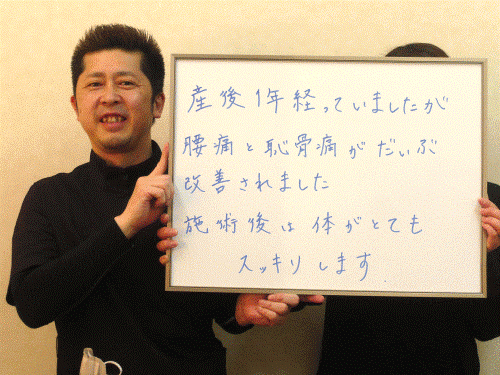 産後1年経っていましたが
腰痛と恥骨痛がだいぶ
改善されました
施術後は体がとても
スッキリします